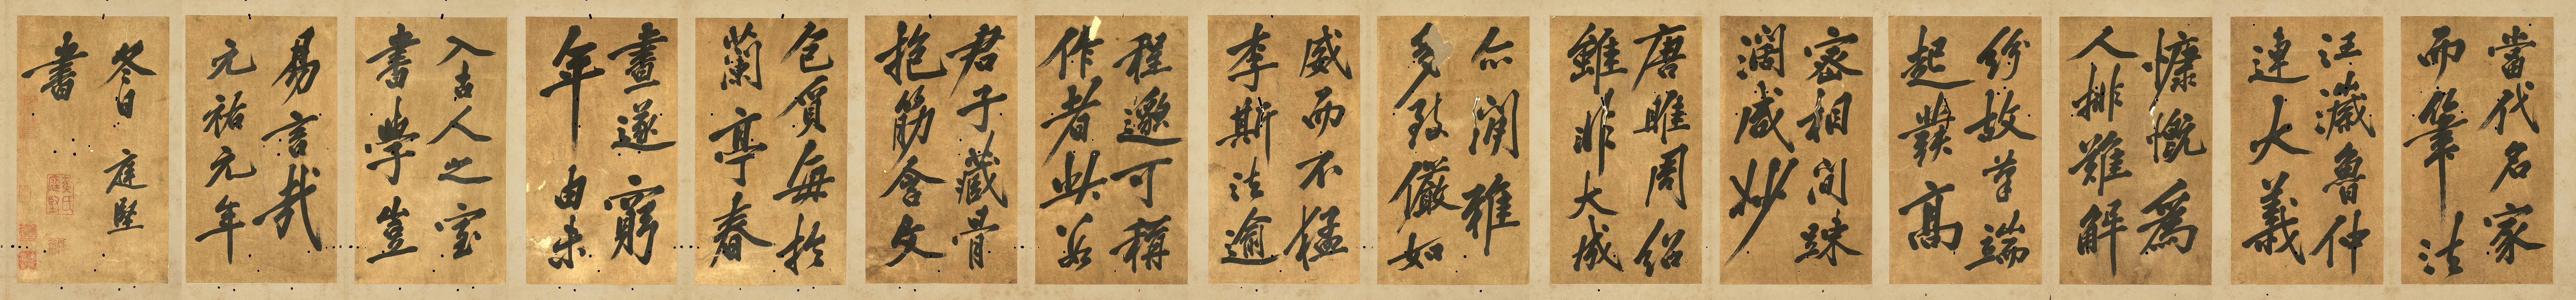 當代名家
而筆法
汪濊魯仲
連大義
慷慨為
人排難解
紛故筆端
起對高
密相間疎
濶咸妙
唐雎周紹
雖非大成
尒潤雅
多致儼如
威而不猛
李斯法逾
程邈可稱
作者此必
君子藏骨
抱筋含文
包質每於
蘭亭春
畫遂窮
年由来
入古人之室
書學豈
易言哉
元祐元年
冬日 庭堅
書